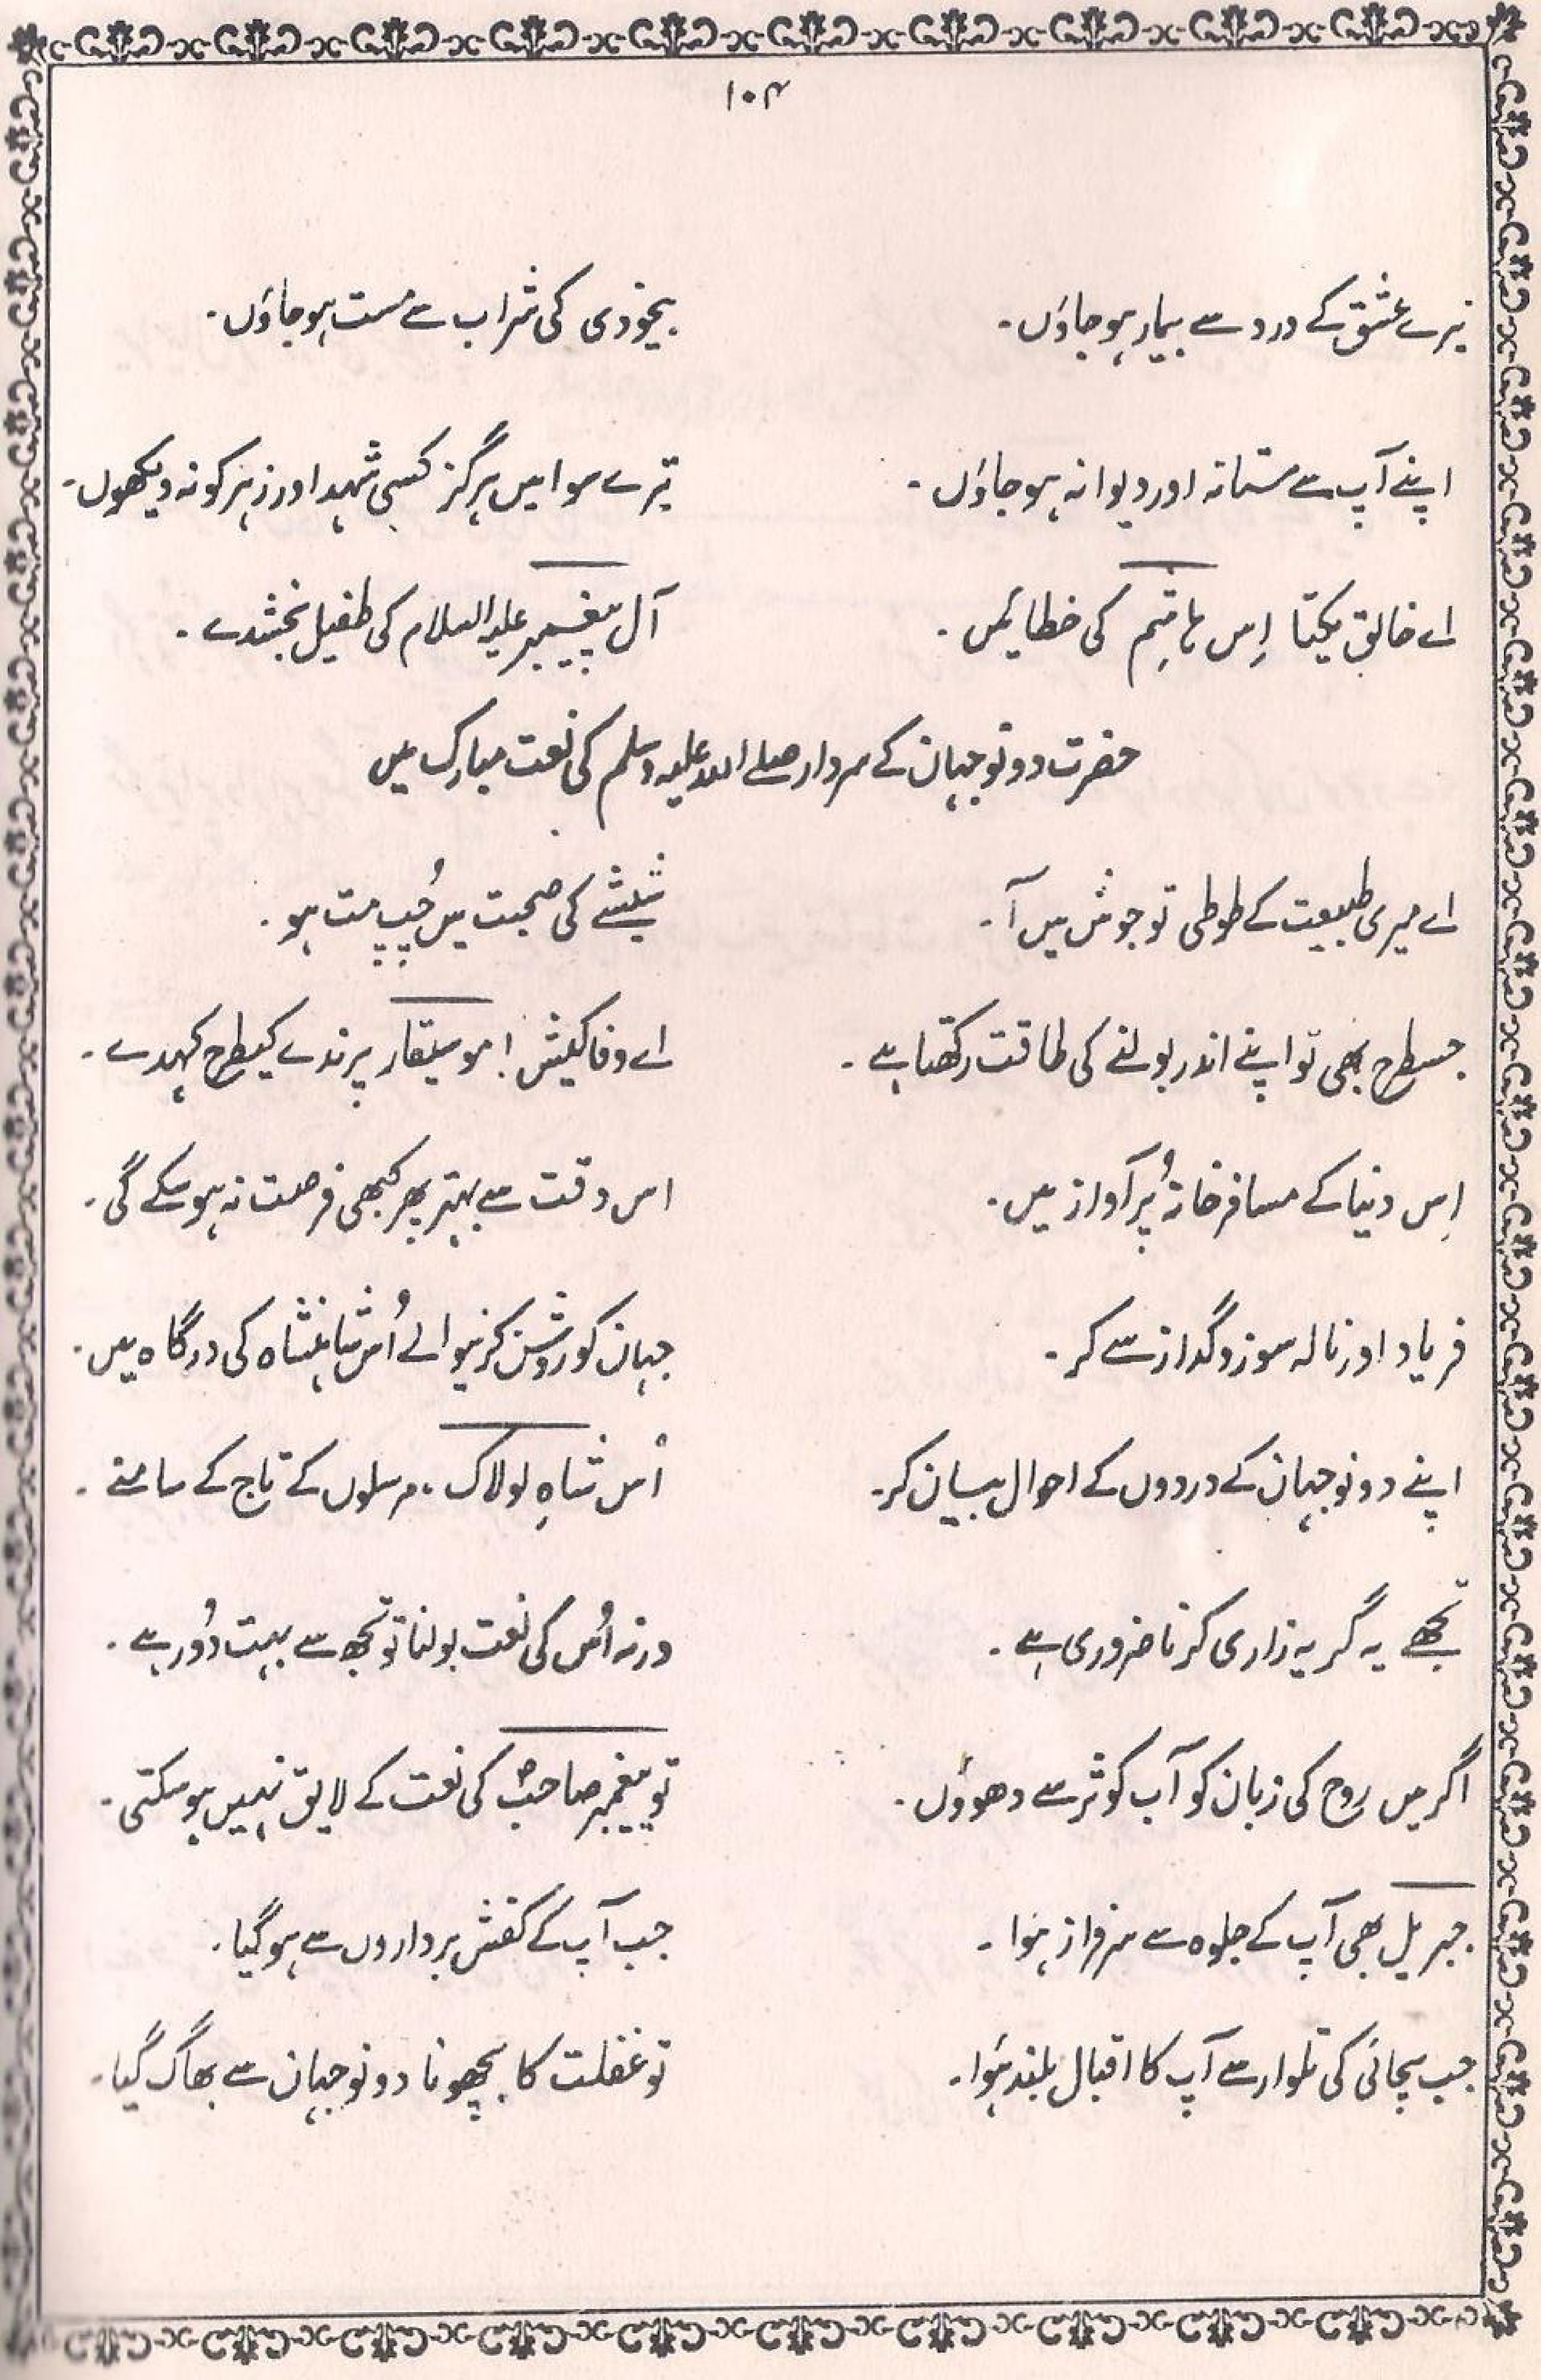 ۱۰۴
تیرے عشق کے درد سے بیمار ہو جاؤں۔ بیخودی کی شراب سے مست ہو جاؤں۔
اپنے آپ سے مستانہ اور دیوانہ ہو جاؤں۔ تیرے سوا میں ہرگز کسی شہد اور زہر کو نہ دیکھوں۔
اے خالق یکتا اِس ہاشم کی خطائیں۔ آل پیغمبر علیہ السلام کی طفیل بخشدے۔
حضرت دونو جہان کے سردار صلے اللہ علیہ وسلم کی نعت مبارک میں
اے میری طبیعت کے طوطی تو جوش میں آ۔ شیشے کی صحبت میں چُپ مت ہو۔
جسطرح بھی تو اپنے اندر بولنے کی طاقت رکھتا ہے۔ اے وفا کیش! موسیقار پرندے کیطرح کہدے۔
اِس دنیا کے مسافر خانہ پُر آواز میں۔ اس وقت سے بہتر پھر کبھی فرصت نہ ہو سکے گی۔
فریاد اور نالہ سوز و گداز سے کر۔ جہان کو روشن کرنیوالے اُس شاہنشاہ کی درگاہ میں۔
اپنے دونو جہان کے دردوں کے احوال بیان کر۔ اُس شاہِ لولاک، مرسلوں کے تاج کے سامنے۔
تجھے یہ گریہ زاری کرنا ضروری ہے۔ ورنہ اُس کی نعت بولنا تو تجھ سے بہت دُور ہے۔
اگر میں روح کی زبان کو آب کوثر سے دھوؤں۔ تو پیغمبر صاحبؐ کی نعت کے لایق نہیں ہو سکتی۔
جبریل بھی آپ کے جلوہ سے سرفراز ہوا۔ جب آپ کے کفش برداروں سے ہو گیا۔
جب سچائی کی تلوار سے آپ کا اقبال بلند ہوا۔ تو غفلت کا بچھونا دونو جہان سے بھاگ گیا۔